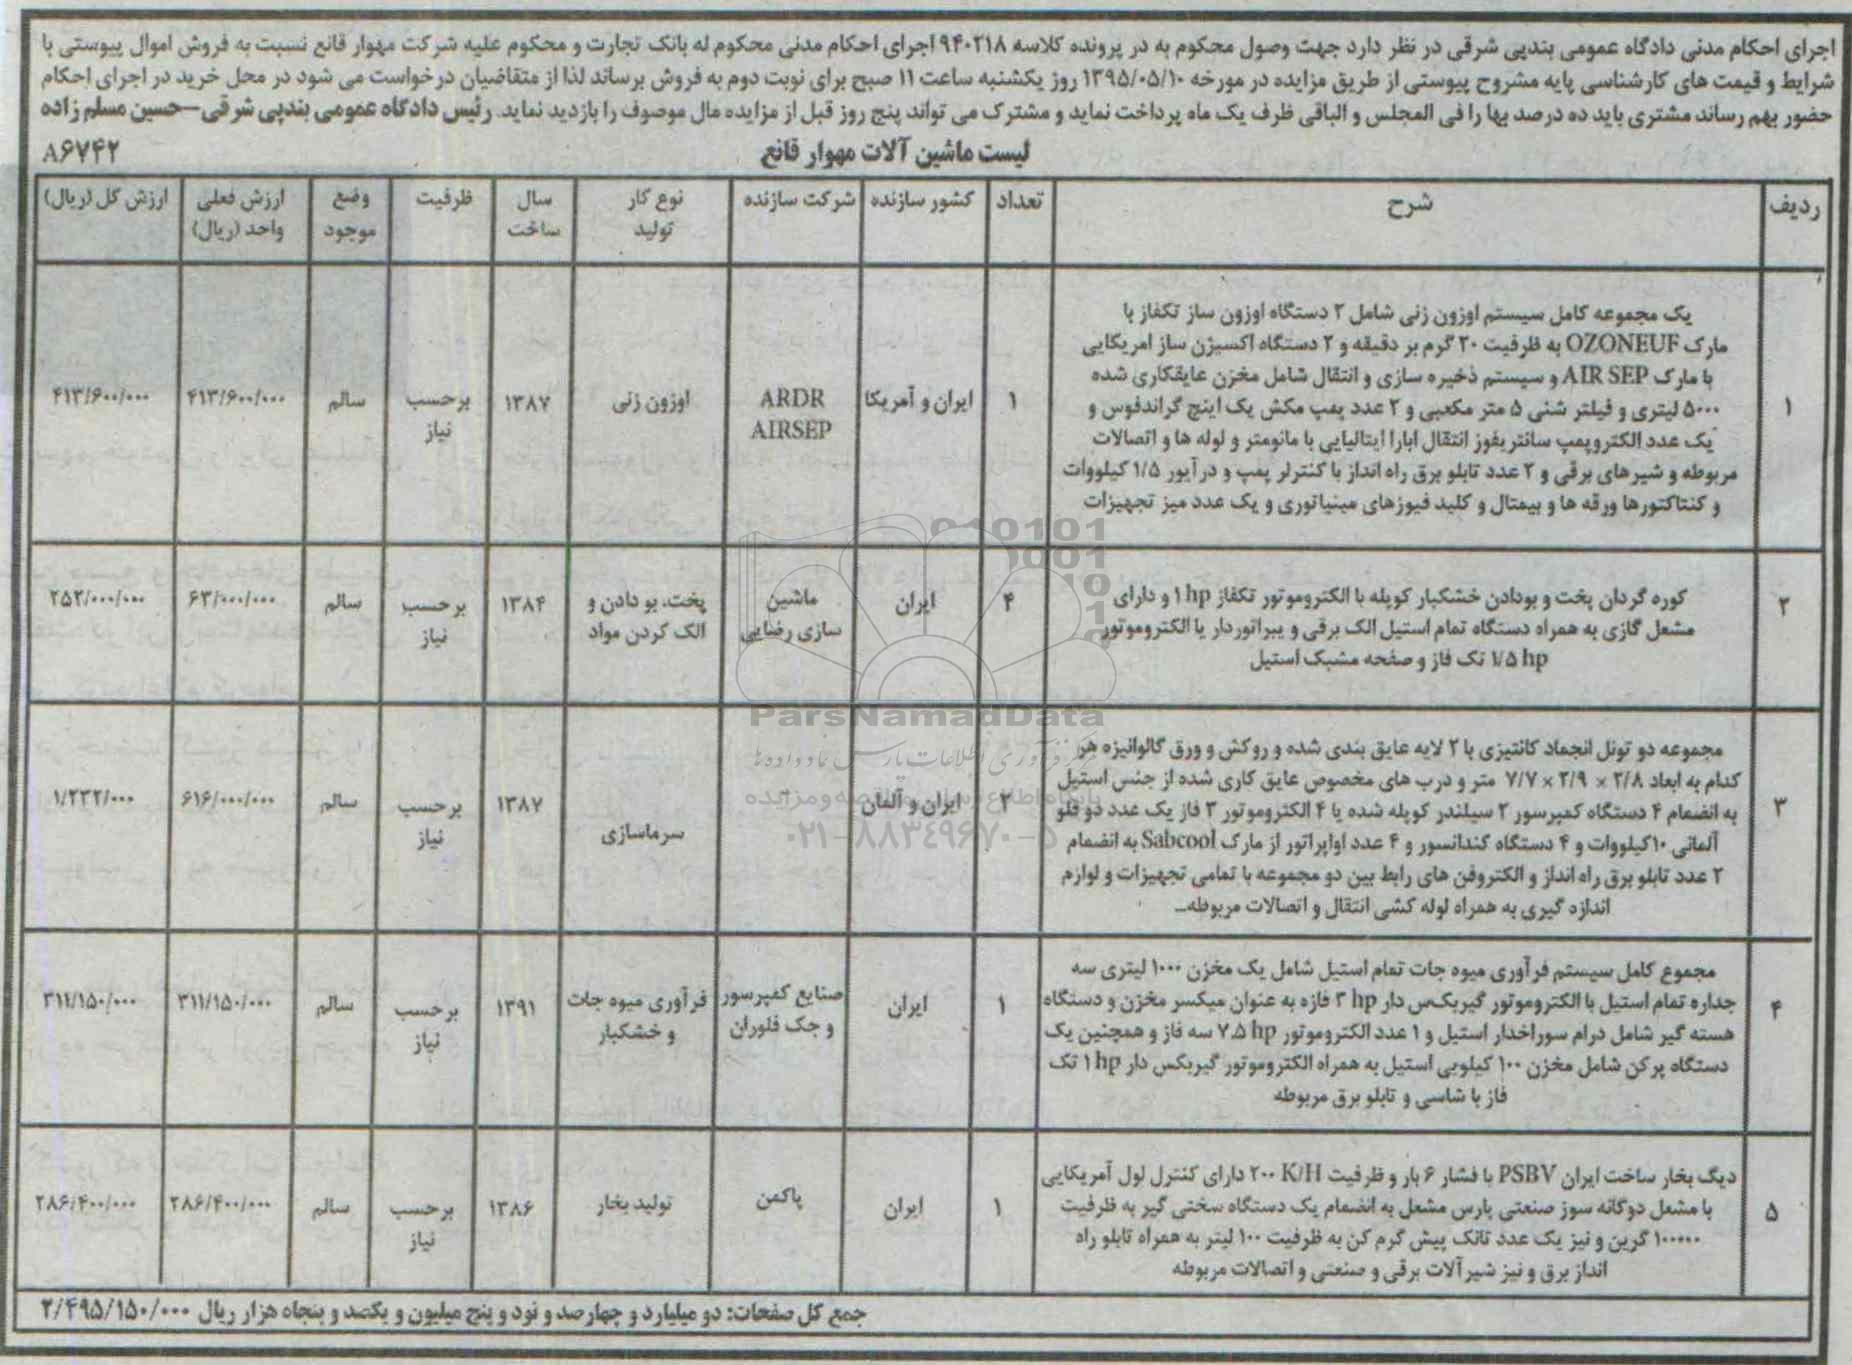 اجرای احکام مدنی دادگاه عمومی بندپی شرقی در نظر دارد جهت وصول محکوم به در پرونده کلاسه ۹۴۰۲۱۸ اجرای احکام مدنی محکوم له بانک تجارت و محکوم علیه شرکت مهوار قانع نسبت به فروش اموال پیوستی با
شرایط و قیمت های کارشناسی پایه مشروح پیوستی از طریق مزایده در مورخه ۱۳۹۵/۰۵/۱۰ روز یکشنبه ساعت ۱۱ صبح برای نوبت دوم به فروش برساند لذا از متقاضیان درخواست می شود در محل خرید در اجرای احکام
حضور بهم رساند مشتری باید ده درصد بها را فی المجلس و الباقی ظرف یک ماه پرداخت نماید و مشترک می تواند پنج روز قبل از مزایده مال موصوف را بازدید نماید. رئیس دادگاه عمومی بندپی شرقی–حسین مسلم زاده
لیست ماشین آلات مهوار قانع
A۶۷۴۲
ردیف شرح تعداد کشور سازنده شرکت سازنده نوع کار تولید سال ساخت ظرفیت وضع موجود ارزش فعلی واحد (ریال) ارزش کل (ریال)
۱
یک مجموعه کامل سیستم اوزون زنی شامل ۲ دستگاه اوزون ساز تکفاز با
مارک OZONEUF به ظرفیت ۲۰ گرم بر دقیقه و ۲ دستگاه اکسیژن ساز امریکایی
با مارک AIR SEP و سیستم ذخیره سازی و انتقال شامل مخزن عایقکاری شده
۵۰۰۰ لیتری و فیلتر شنی ۵ متر مکعبی و ۲ عدد پمپ مکش یک اینچ گراندفوس و
یک عدد الکتروپمپ سانتریفوز انتقال ابارا ایتالیایی با مانومتر و لوله ها و اتصالات
مربوطه و شیرهای برقی و ۲ عدد تابلو برق راه انداز با کنترلر پمپ و درآیور ۱/۵ کیلووات
و کنتاکتورها ورقه ها و بیمتال و کلید فیوزهای مینیاتوری و یک عدد میز تجهیزات
۱ ایران و آمریکا ARDR AIRSEP اوزون زنی ۱۳۸۷ برحسب نیاز سالم ۴۱۳/۶۰۰/۰۰۰ ۴۱۳/۶۰۰/۰۰۰
۲
کوره گردان پخت و بودادن خشکبار کوپله با الکتروموتور تکفاز ۱ hp و دارای
مشعل گازی به همراه دستگاه تمام استیل الک برقی و یبراتوردار یا الکتروموتور
۱/۵ hp تک فاز و صفحه مشبک استیل
۴ ایران ماشین سازی رضایی پخت، بو دادن و الک کردن مواد ۱۳۸۴ برحسب نیاز سالم ۶۳/۰۰۰/۰۰۰ ۲۵۲/۰۰۰/۰۰۰
۳
مجموعه دو تونل انجماد کانتیزی با ۲ لایه عایق بندی شده و روکش و ورق گالوانیزه هر
کدام به ابعاد ۲/۸ × ۲/۹ × ۷/۷ متر و درب های مخصوص عایق کاری شده از جنس استیل
به انضمام ۴ دستگاه کمپرسور ۲ سیلندر کوپله شده یا ۴ الکتروموتور ۳ فاز یک عدد دو قلو
آلمانی ۱۰کیلووات و ۴ دستگاه کندانسور و ۴ عدد اواپراتور از مارک Sabcool به انضمام
۲ عدد تابلو برق راه انداز و الکتروفن های رابط بین دو مجموعه با تمامی تجهیزات و لوازم
اندازه گیری به همراه لوله کشی انتقال و اتصالات مربوطه...
۲ ایران و آلمان سرماسازی ۱۳۸۷ برحسب نیاز سالم ۶۱۶/۰۰۰/۰۰۰ ۱/۲۳۲/۰۰۰
۴
مجموع کامل سیستم فرآوری میوه جات تمام استیل شامل یک مخزن ۱۰۰۰ لیتری سه
جداره تمام استیل با الکتروموتور گیربکس دار ۳ hp فازه به عنوان میکسر مخزن و دستگاه
هسته گیر شامل درام سوراخدار استیل و ۱ عدد الکتروموتور ۷.۵ hp سه فاز و همچنین یک
دستگاه پرکن شامل مخزن ۱۰۰ کیلویی استیل به همراه الکتروموتور گیربکس دار ۱ hp تک
فاز با شاسی و تابلو برق مربوطه
۱ ایران صنایع کمپرسور و جک فلوران فرآوری میوه جات و خشکبار ۱۳۹۱ برحسب نیاز سالم ۳۱۱/۱۵۰/۰۰۰ ۳۱۱/۱۵۰/۰۰۰
۵
دیگ بخار ساخت ایران PSBV با فشار ۶ بار و ظرفیت ۲۰۰ K/H دارای کنترل لول آمریکایی
با مشعل دوگانه سوز صنعتی پارس مشعل به انضمام یک دستگاه سختی گیر به ظرفیت
۱۰۰۰۰۰ گرین و نیز یک عدد تانک پیش گرم کن به ظرفیت ۱۰۰ لیتر به همراه تابلو راه
انداز برق و نیز شیرآلات برقی و صنعتی و اتصالات مربوطه
۱ ایران پاکمن تولید بخار ۱۳۸۶ برحسب نیاز سالم ۲۸۶/۴۰۰/۰۰۰ ۲۸۶/۴۰۰/۰۰۰
جمع کل صفحات: دو میلیارد و چهارصد و نود و پنج میلیون و یکصد و پنجاه هزار ریال ۲/۴۹۵/۱۵۰/۰۰۰
ParsNamadData
مرکز فرآوری اطلاعات پارس نماد داده ها
۰۲۱-۸۸۳۴۹۶۷۰-۵